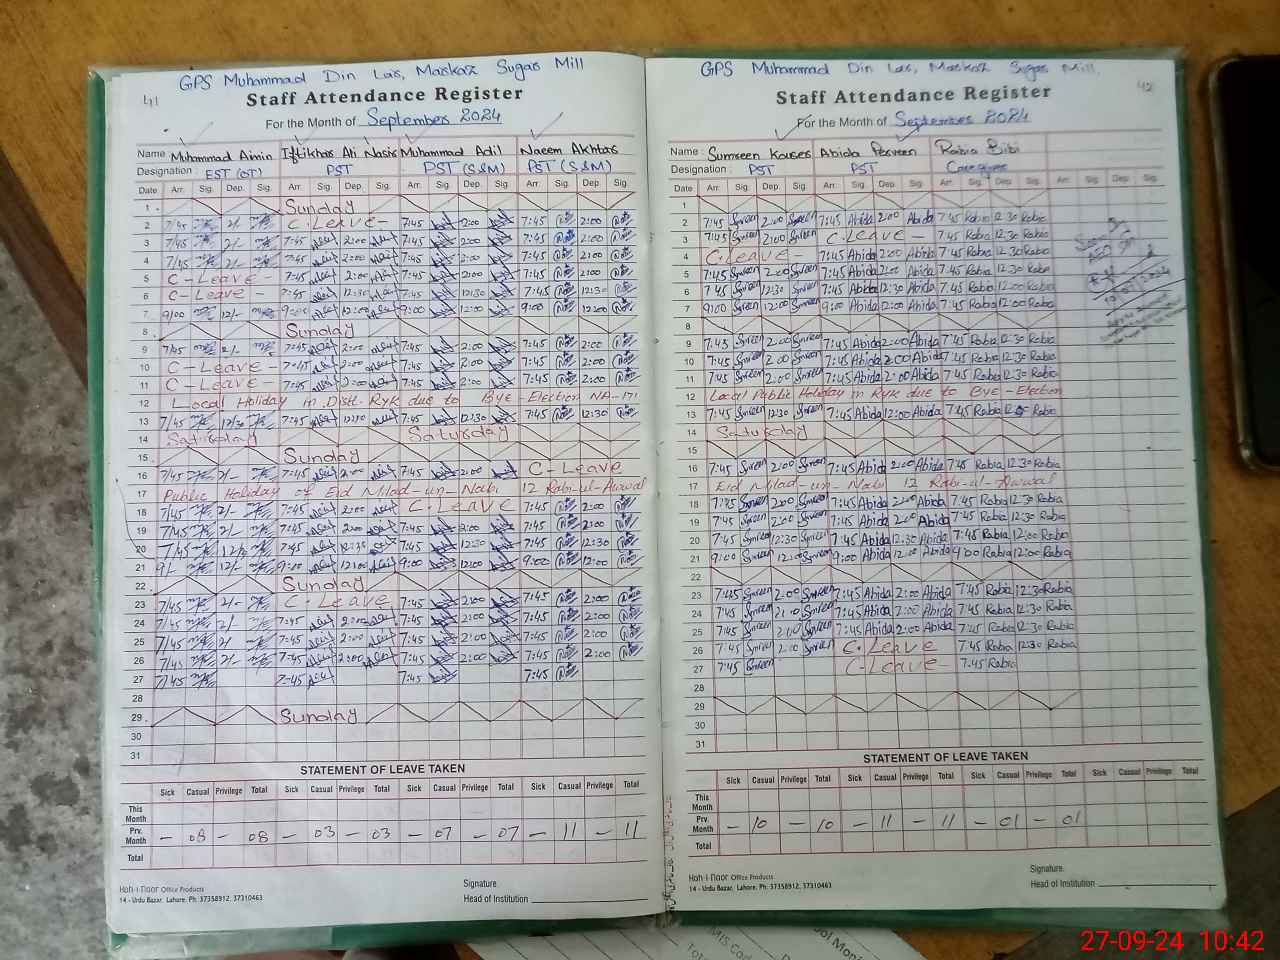 GPS Muhammad Din Lar, Markaz Sugar Mill
41
Staff Attendance Register
For the Month of September 2024
Name Muhammad Aimin Iftikhar Ali Nasir Muhammad Adil Naeem Akhtar
Designation: EST (OT) PST PST (S&M) PST (S&M)
Date Arr. Sig. Dep. Sig. Arr. Sig. Dep. Sig. Arr. Sig. Dep. Sig. Arr. Sig. Dep. Sig.
1 Sunday
2 7/45 2/- C-Leave- 7:45 2:00 7:45 2:00
3 7/45 2/- 7:45 2:00 7:45 2:00 7:45 2:00
4 7/45 2/- 7:45 2:00 7:45 2:00 7:45 2:00
5 C-Leave- 7:45 2:00 7:45 2:00 7:45 2:00
6 C-Leave- 7:45 12:30 7:45 12:30 7:45 12:30
7 9/00 12/- 9:00 12:00 9:00 12:00 9:00 12:00
8 Sunday
9 7/45 2/- 7:45 2:00 7:45 2:00 7:45 2:00
10 C-Leave- 7:45 2:00 7:45 2:00 7:45 2:00
11 C-Leave- 7:45 2:00 7:45 2:00 7:45 2:00
12 Local Holiday in Distt. Ryk due to Bye-Election NA-171
13 7/45 12/30 7:45 7:45 12:30 7:45 12:30
14 Saturday Saturday
15 Sunday
16 7/45 2/- 7:45 2:00 7:45 2:00 C-Leave
17 Public Holiday of Eid Milad-un-Nabi 12 Rabi-ul-Awwal
18 7/45 2/- 7:45 2:00 C-Leave 7:45 2:00
19 7/45 2/- 7:45 2:00 7:45 2:00 7:45 2:00
20 7/45 7:45 12:30 7:45 12:30 7:45 12:30
21 9/- 12/- 9:00 12:00 9:00 12:00 9:00 12:00
22 Sunday
23 7/45 2/- C-Leave 7:45 2:00 7:45 2:00
24 7/45 2/- 7:45 2:00 7:45 2:00 7:45 2:00
25 7/45 2/- 7:45 2:00 7:45 2:00 7:45 2:00
26 7/45 2/- 7:45 2:00 7:45 2:00 7:45 2:00
27 7/45 7:45 7:45 7:45
28
29 Sunday
30
31
STATEMENT OF LEAVE TAKEN
Sick Casual Privilege Total Sick Casual Privilege Total Sick Casual Privilege Total Sick Casual Privilege Total
This Month
Prv. Month - 08 - 08 - 03 - 03 - 07 - 07 - 11 - 11
Total
Hoh-i-Noor Office Products
14 - Urdu Bazar, Lahore. Ph. 37358912, 37310463
Signature.
Head of Institution
GPS Muhammad Din Lar, Markaz Sugar Mill
42
Staff Attendance Register
For the Month of September 2024
Name : Sumreen Kouser Abida Perveen Rabia Bibi
Designation: PST PST Caregiver
Date Arr. Sig. Dep. Sig. Arr. Sig. Dep. Sig. Arr. Sig. Dep. Sig. Arr. Sig. Dep. Sig.
1
2 7:45 Smreen 2:00 Smreen 7:45 Abida 2:00 Abida 7:45 Rabia 12:30 Rabia
3 7:45 Smreen 2:00 Smreen C-Leave - 7:45 Rabia 12:30 Rabia
4 C-Leave - 7:45 Abida 2:00 Abida 7:45 Rabia 12:30 Rabia
5 7:45 Smreen 2:00 Smreen 7:45 Abida 2:00 Abida 7:45 Rabia 12:30 Rabia
6 7:45 Smreen 12:30 Smreen 7:45 Abida 12:30 Abida 7:45 Rabia 12:30 Rabia
7 9:00 Smreen 12:00 Smreen 9:00 Abida 12:00 Abida 7:45 Rabia 12:00 Rabia
8
9 7:45 Smreen 2:00 Smreen 7:45 Abida 2:00 Abida 7:45 Rabia 12:30 Rabia
10 7:45 Smreen 2:00 Smreen 7:45 Abida 2:00 Abida 7:45 Rabia 12:30 Rabia
11 7:45 Smreen 2:00 Smreen 7:45 Abida 2:00 Abida 7:45 Rabia 12:30 Rabia
12 Local Public Holiday in Ryk due to Bye-Election
13 7:45 Smreen 12:30 Smreen 7:45 Abida 12:00 Abida 7:45 Rabia Rabia
14 Saturday
15
16 7:45 Smreen 2:00 Smreen 7:45 Abida 2:00 Abida 7:45 Rabia 12:30 Rabia
17 Eid Milad-un-Nabi 12 Rabi-ul-Awwal
18 7:45 Smreen 2:00 Smreen 7:45 Abida 2:00 Abida 7:45 Rabia 12:30 Rabia
19 7:45 Smreen 2:00 Smreen 7:45 Abida 2:00 Abida 7:45 Rabia 12:30 Rabia
20 7:45 Smreen 12:30 Smreen 7:45 Abida 12:30 Abida 7:45 Rabia 12:00 Rabia
21 9:00 Smreen 12:00 Smreen 9:00 Abida 12:00 Abida 9:00 Rabia 12:00 Rabia
22
23 7:45 Smreen 2:00 Smreen 7:45 Abida 2:00 Abida 7:45 Rabia 12:30 Rabia
24 7:45 Smreen 2:00 Smreen 7:45 Abida 2:00 Abida 7:45 Rabia 12:30 Rabia
25 7:45 Smreen 2:00 Smreen 7:45 Abida 2:00 Abida 7:45 Rabia 12:30 Rabia
26 7:45 Smreen 2:00 Smreen C-Leave 7:45 Rabia 12:30 Rabia
27 7:45 Smreen C-Leave- 7:45 Rabia
28
29
30
31
STATEMENT OF LEAVE TAKEN
Sick Casual Privilege Total Sick Casual Privilege Total Sick Casual Privilege Total Sick Casual Privilege Total
This Month
Prv. Month - 10 - 10 - 11 - 11 - 01 - 01
Total
Hoh-i-Noor Office Products
14 - Urdu Bazar, Lahore. Ph. 37358912, 37310463
Signature.
Head of Institution
27-09-24 10:42